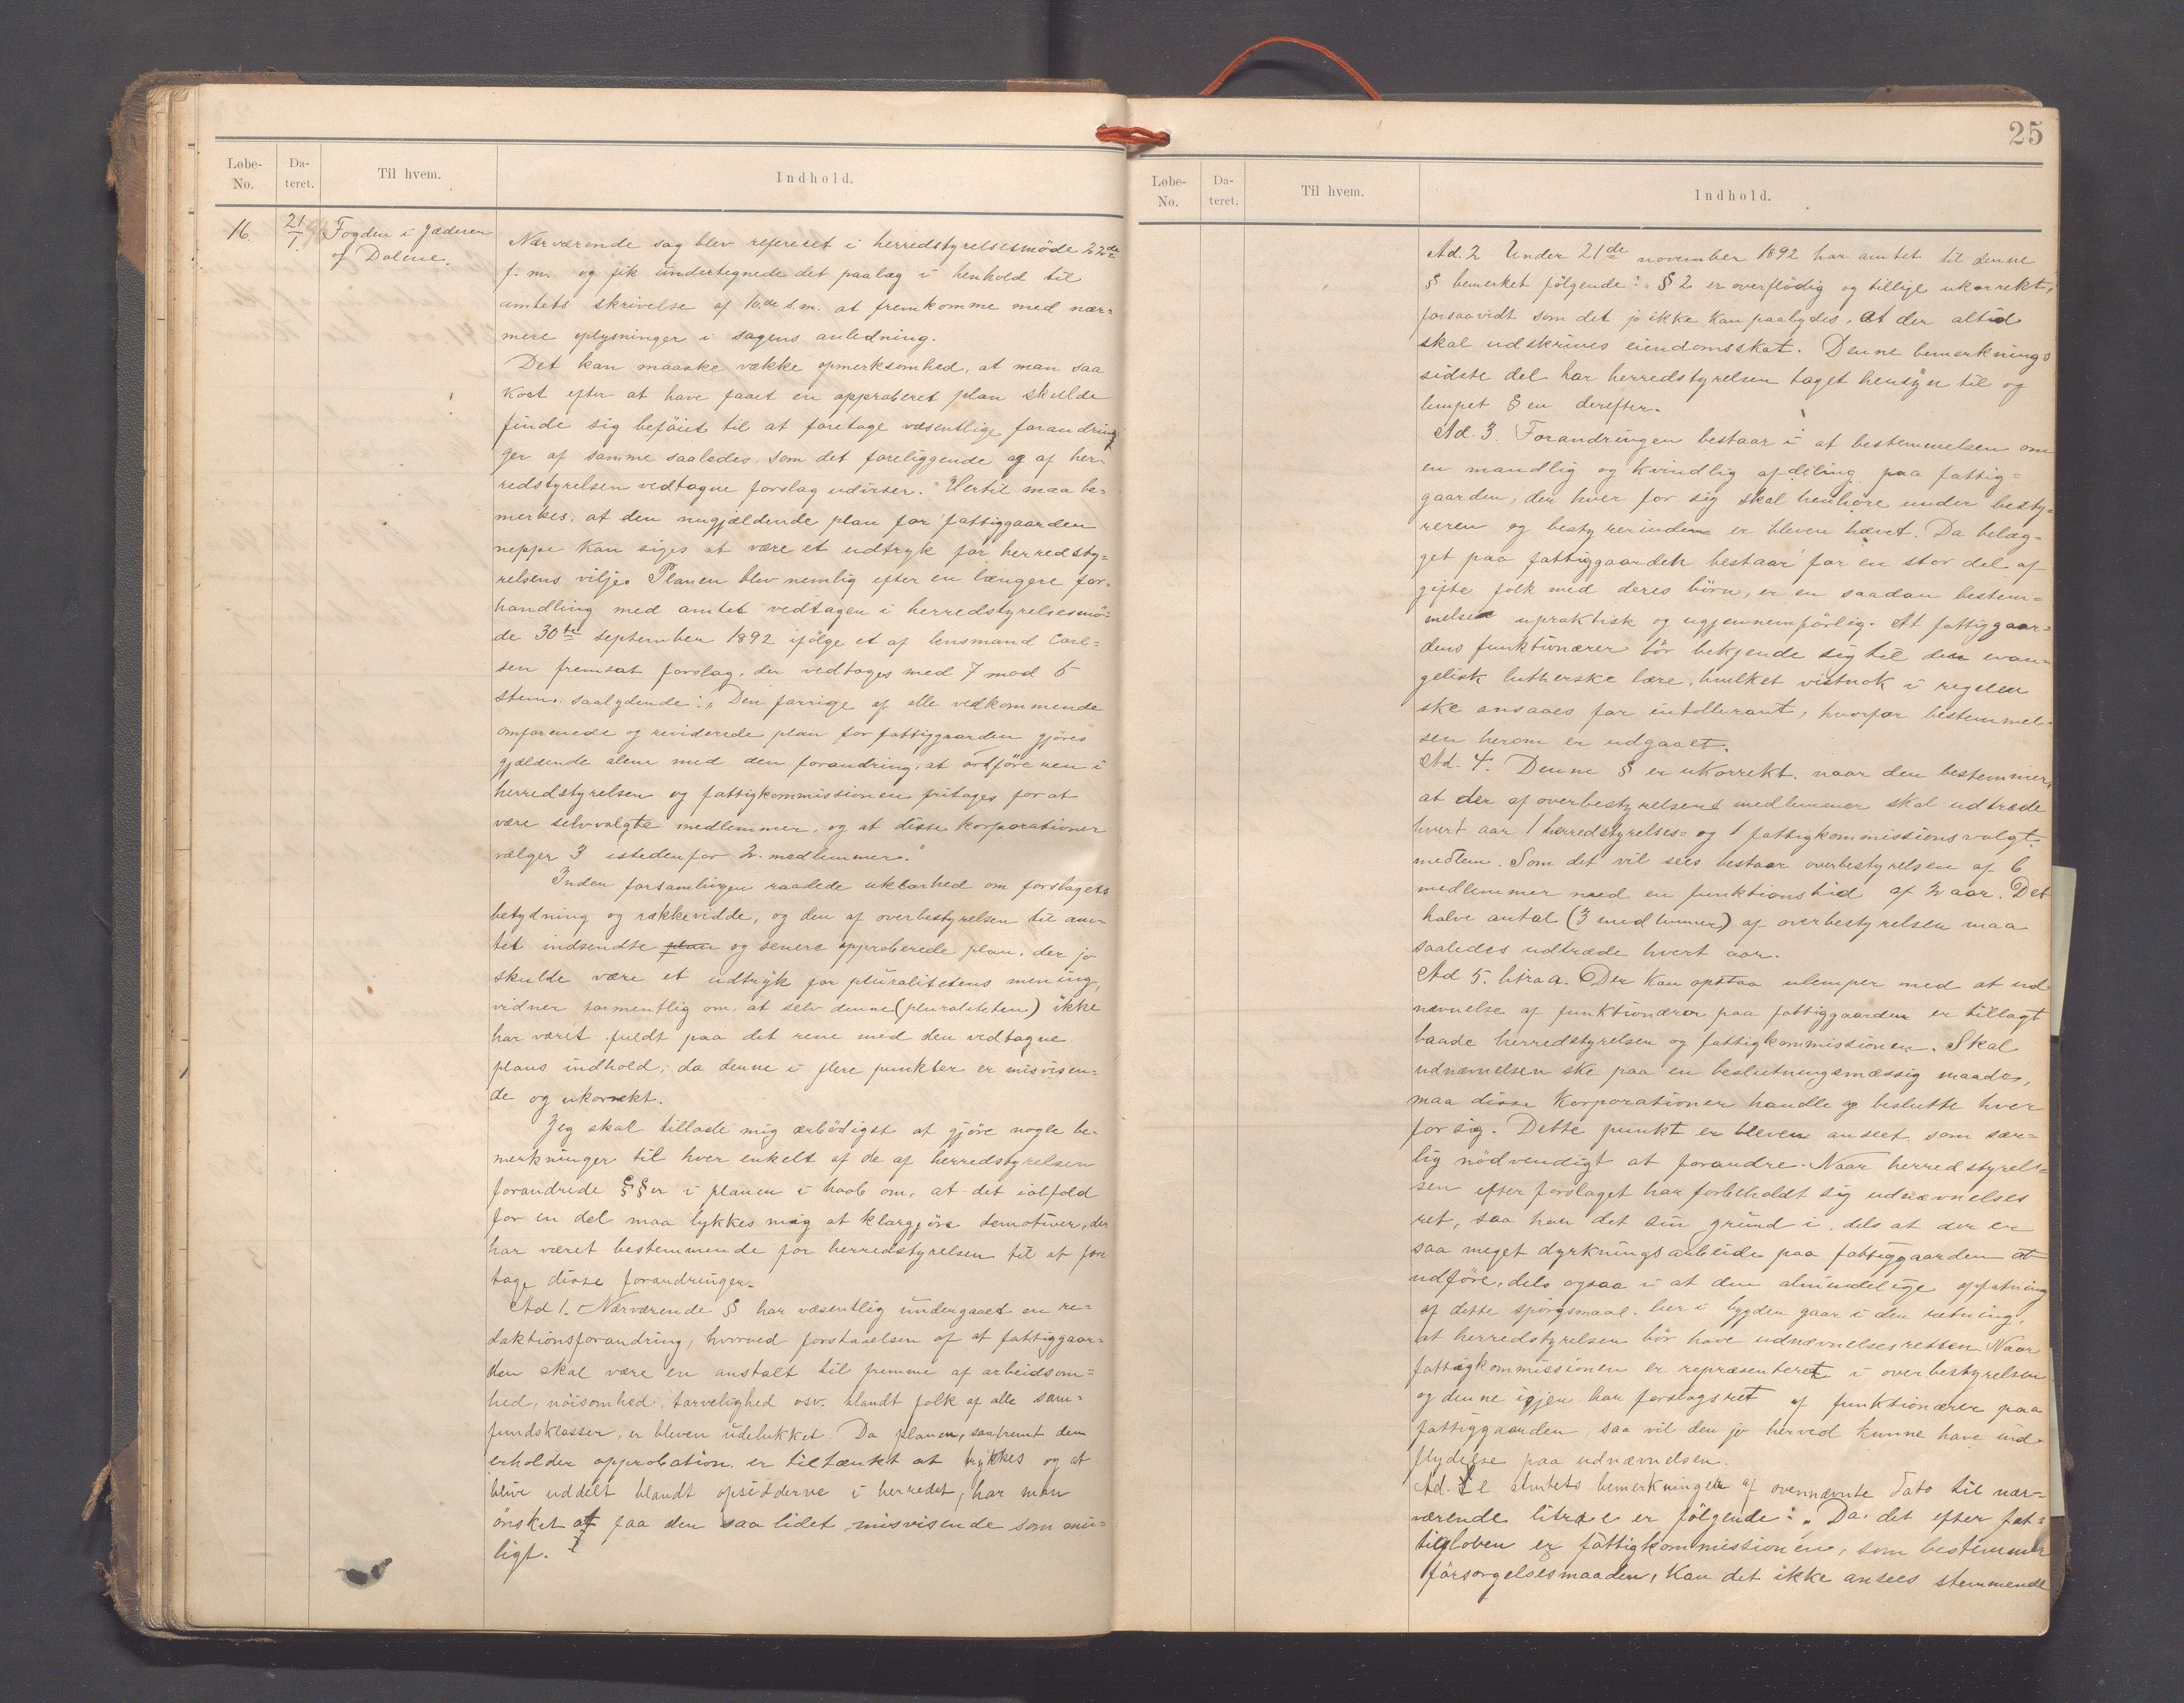 Løbe-No. Da-teret. Til hvem. Indhold.
16. 21/1. Fogden i Jæderen
og Dalene.
Nærværende sag blev refereret i herredstyrelsesmöde 22de
f. m. og fik undertegnede det paalæg i henhold til
amtets skrivelse af 10.de s.m. at fremkomme med nær=
mere oplysninger i sagens anledning.
Det kan maaske vække opmerksomhed, at man saa
kort efter at have faaet en approberet plan skulde
finde sig beföiet til at foretage væsentlige forandrin
ger af samme saaledes, som det foreliggende og af her-
redstyrelsen vedtagne forslag udviser. Hertil maa be-
merkes, at den nugjældende plan for fattiggaarden
neppe kan siges at være et udtryk for herredsty=
relsens vilje. Planen blev nemlig efter en længere for-
handling med amtet vedtagen i herredstyrelsesmö-
de 30te september 1892 ifölge et af lensmand Carl=
sen fremsat forslag, der vedtoges med 7 mod 6
stem. saalydende: "Den forrige af alle vedkommende
omformede og reviderede plan for fattiggaarden gjöres
gjældende alene med den forandring, at ordföreren i
herredstyrelsen og fattigkommissionen fritages for at
være selvvalgte medlemmer, og at disse korporationer
vælger 3 istedenfor 2 medlemmer."
Inden forsamlingen raadede uklarhed om forslagets
betydning og rækkevidde, og den af overbestyrelsen til am-
tet indsendte plan og senere approberede plan, der jo
skulde være et udtryk for pluralitetens mening,
vidner formentlig om, at selv denne (pluraliteten) ikke
har været fuldt paa det rene med den vedtagne
plans indhold, da denne i flere punkter er misvisen=
de og ukorrekt.
Jeg skal tillade mig ærbödigst at gjöre nogle be-
merkninger til hver enkelt af de af herredstyrelsen
forandrede §§er i planen i haab om, at det ialfald
for en del maa lykkes mig at klargjöre de motiver, der
har været bestemmende for herredstyrelsen til at fore
tage disse forandringer.
Ad 1. Nærværende § har væsentlig undergaaet en re=
daktionsforandring, hvorved forstaaelsen af at fattiggaar=
den skal være en anstalt til fremme af arbeidsom=
hed, nöisomhed, tarvelighed osv. blandt folk af alle sam=
fundsklasser, er bleven udelukket. Da planen, saafremt den
erholder approbation er tiltænkt at trykkes og at
blive uddelt blandt opsidderne i herredet, har man
önsket at faa den saa lidet misvisende som mu=
ligt.
25
Løbe-No. Da-teret. Til hvem. Indhold.
Ad. 2 Under 21de november 1892 har amtet til denne
§ bemerket fölgende: "§ 2 er overflödig og tillige ukorrekt,
forsaavidt som det jo ikke kan paabydes, at der altid
skal udskrives eiendomsskat. Denne bemerknings
sidste del har herredstyrelsen taget hensyn til og
lempet §en derefter.
Ad. 3. Forandringen bestaar i at bestemmelsen om
en mandlig og kvindlig afdeling paa fattig=
gaarden, der hver for sig skal henhöre under besty=
reren og bestyrerinden er bleven hævet. Da belæg=
get paa fattiggaarden bestaar for en stor del af
gifte folk med deres börn, er en saadan bestem=
melse upraktisk og ugjennemförlig. At fattiggaar=
dens funktionærer bör bekjende sig til den evan=
gelisk lutherske lære, hvilket vistnok i regelen
ske ansaaes for intollerant, hvorfor bestemmel-
sen herom er udgaaet.
Ad. 4. Denne § er ukorrekt, naar den bestemmer,
at der af overbestyrelsens medlemmer skal udtræde
hvert aar 1 herredstyrelses= og 1 fattigkommissionsvalgt
medlem. Som det vil sees bestaar overbestyrelsen af 6
medlemmer med en funktionstid af 2 aar. Det
halve antal (3 medlemmer) af overbestyrelsen maa
saaledes udtræde hvert aar.
Ad 5. litra a. Der kan opstaa ulemper med at ud
nævnelse af funktionærer paa fattiggaarden er tillagt
baade herredstyrelsen og fattigkommissionen. Skal
udnævnelsen ske paa en beslutningsmæssig maade,
maa disse korporationer handle og beslutte hver
for sig. Dette punkt er bleven anseet som sær=
lig nödvendigt at forandre. Naar herredstyrel=
sen efter forslaget har forbeholdt sig udnævnelses
ret, saa har det sin grund i, dels at der er
saa meget dyrkningsarbeide paa fattiggaarden at
udföre, dels ogsaa i at den almindelige opfatning
af dette spörgsmaal her i bygden gaar i den retning,
at herredstyrelsen bör have udnævnelsesretten. Naar
fattigkommissionen er repræsenteret i overbestyrelsen
og denne igjen har forslagsret af funktionærer paa
fattiggaarden, saa vil den jo herved kunne have ind-
flydelse paa udnævnelsen.
Ad. e Amtets bemerkninger af ovennævnte dato til nær=
værende litra e er fölgende: "Da det efter fat=
tigloven er fattigkommissionen, som bestemmer
forsorgelsesmaaden, kan det ikke ansees stemmende